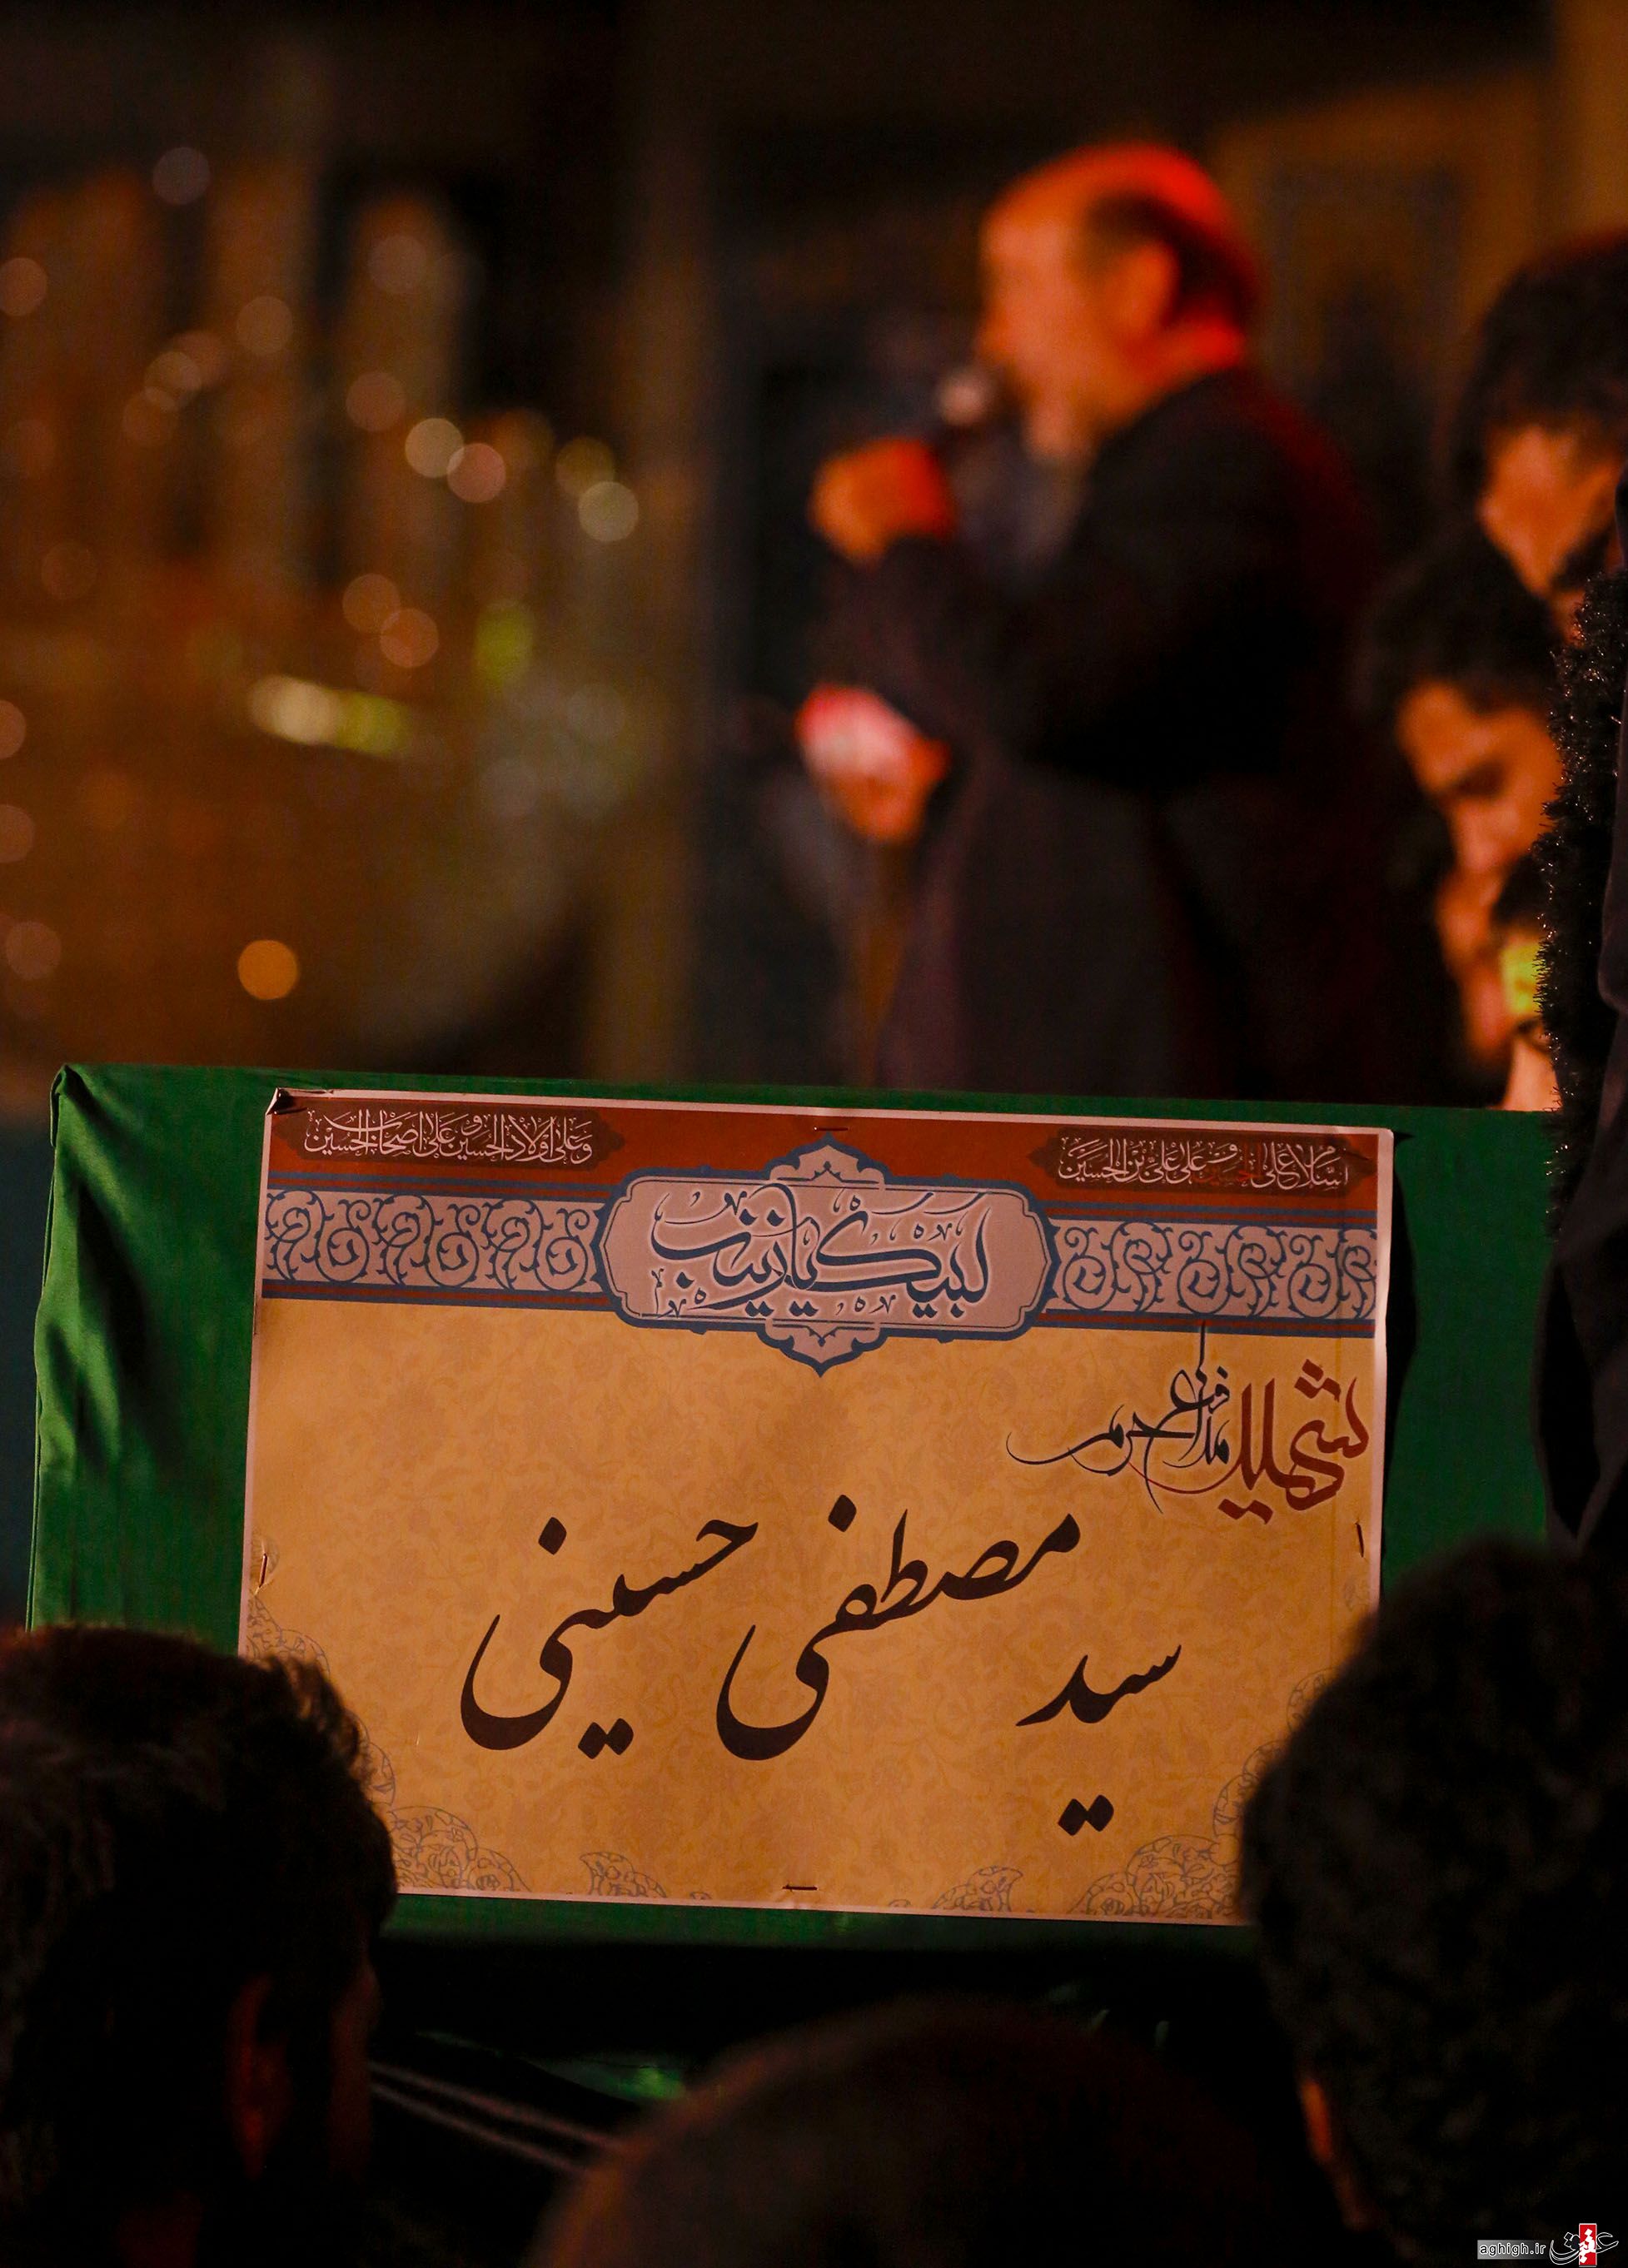 السلام علی الحسین و علی علی بن الحسین
و علی اولاد الحسین و علی اصحاب الحسین
لبیک یا زینب
شهید مدافع حرم
سید مصطفی حسینی
عقیق
aghigh.ir